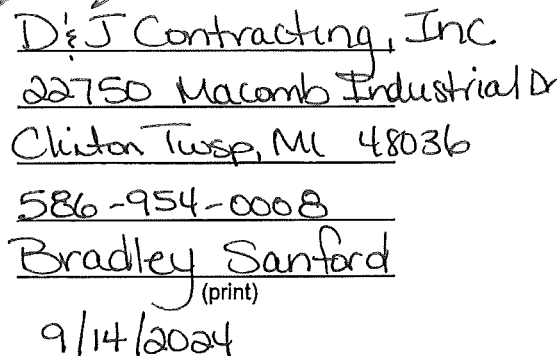 D&J Contracting, Inc
22750 Macomb Industrial Dr
Clinton Twsp, MI 48036
586-954-0008
Bradley Sanford
(print)
9/14/2024